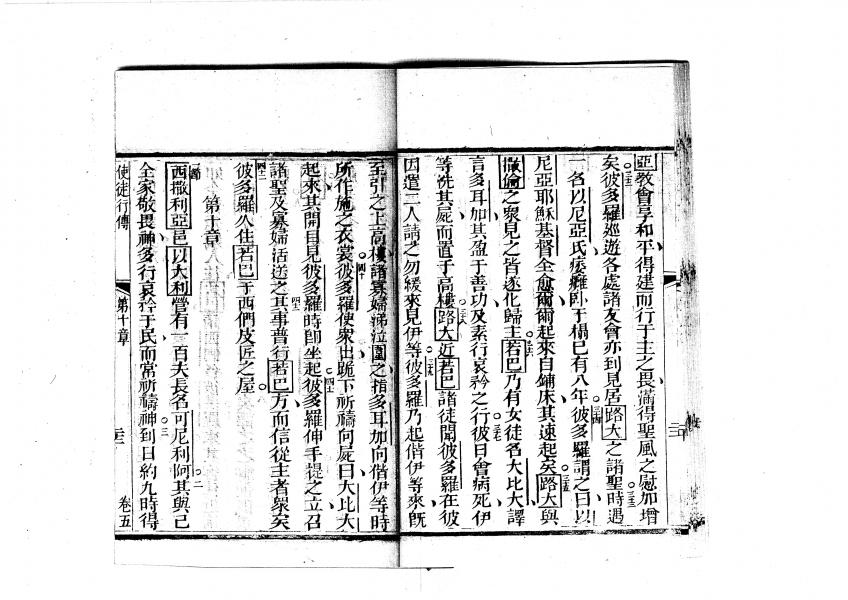 亞教會享和平得建而行于主之畏滿得聖風之慰加增
矣彼多羅巡遊各處諸友會亦到見居路大之諸聖時遇
一名以尼亞氏痿癱臥于榻已有八年彼多羅謂之曰以
尼亞耶穌基督全愈爾爾起來自鋪床其速起矣路大與
撒倫之眾見之皆遂化歸主若巴乃有女徒名大比大譯
言多耳加其盈于善功及素行哀矜之行彼日會病死伊
等洗其屍而置于高樓路大近若巴諸徒聞彼多羅在彼
因遣二人請之勿緩來見伊等彼多羅乃起偕伊等來既
至引之上高樓諸寡婦涕泣圍之指多耳加向偕伊等時
所作施之衣裳彼多羅使眾出跪下祈禱向屍曰大比大
起來其開目見彼多羅時即坐起彼多羅伸手提之立召
諸聖及寡婦活送之其事普行若巴方而信從主者眾矣
彼多羅久住若巴于西們皮匠之屋
第十章
西撒利亞邑以大利營有一百夫長名可尼利阿其與己
全家敬畏神多行哀矜于民而常祈禱神到日約九時得
使徒行傳 第十章 卷五